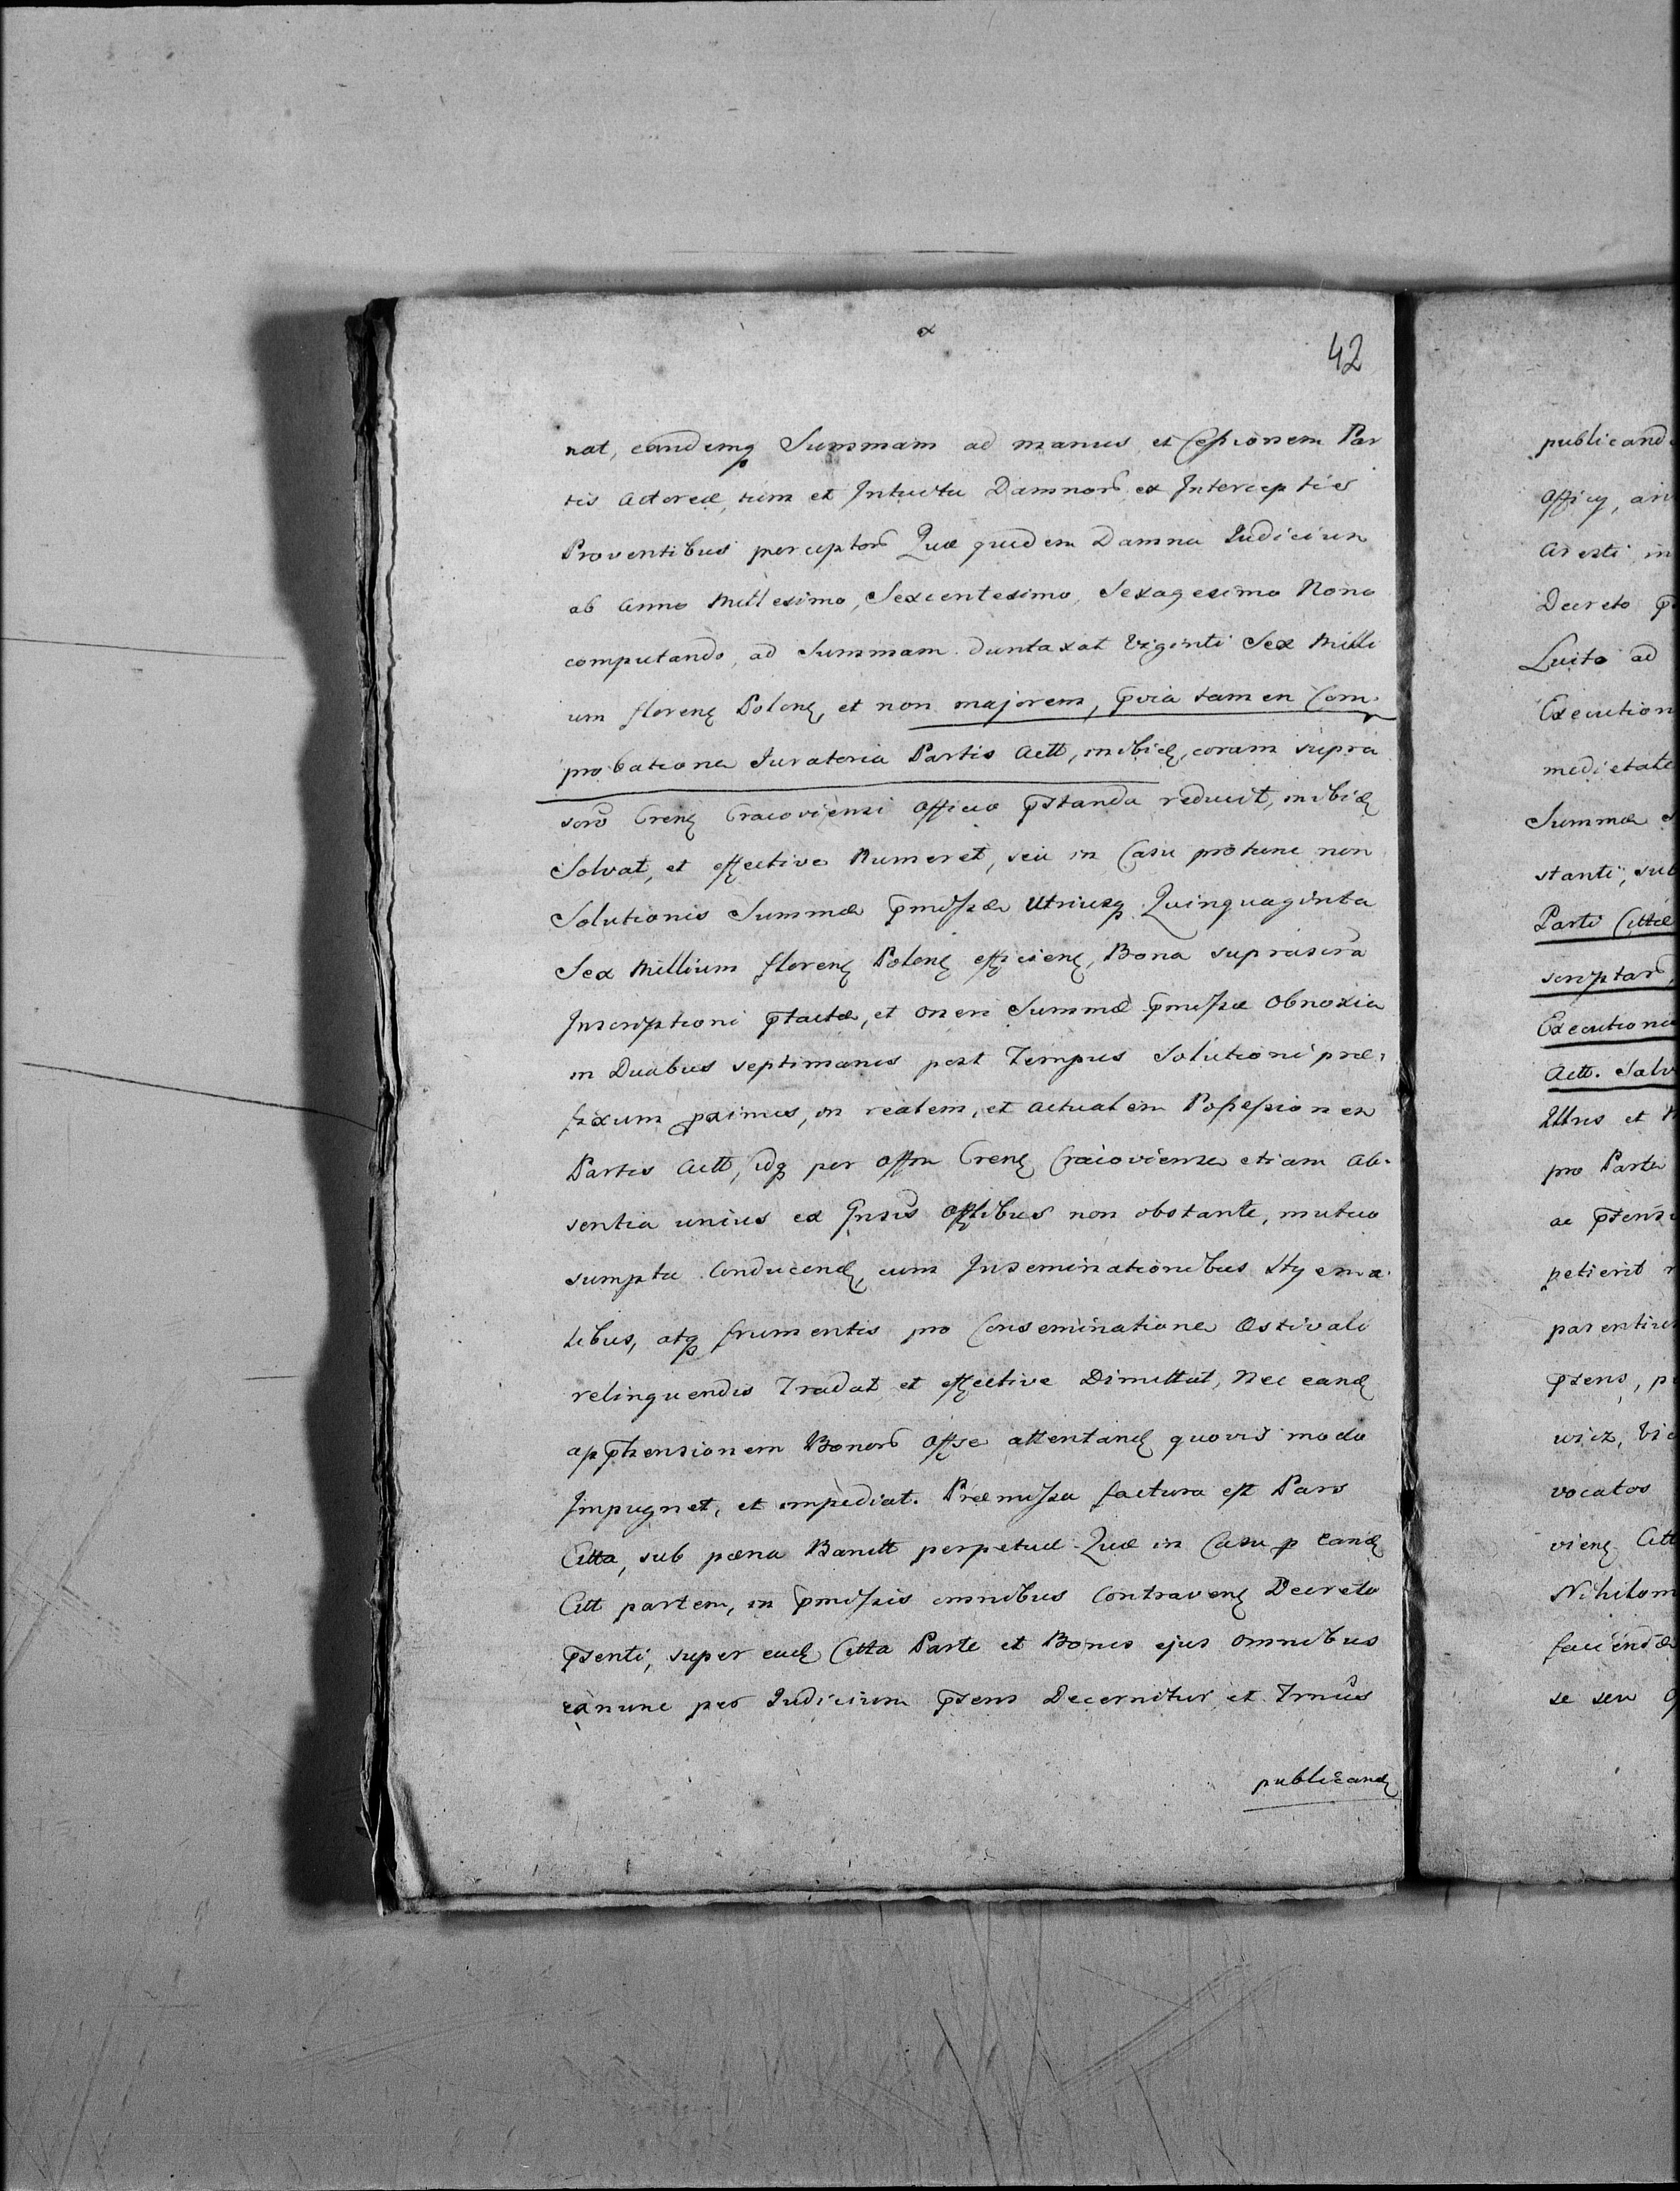 42
nat, eandemq Summam ad manus et Cessionem Par
tis Actoreæ, tum et Intuitu Damnor ex Interceptis
Proventibus perceptor Quæ quidem Damna Judicium
ab Anno Millesimo, Sexcentesimo, Sexagesimo Nono
computando, ad Summam duntaxat Viginti Sex Milli
um floren Polon, et non majorem, prvia tamen Com-
probatione Juratoria Partis Actt, inibid, coram supra
scro Cren Cracoviensi Officio pstanda reducit, inibid
Solvat, et effective Numeret, seu in Casu protunc non
Solutionis Summæ pmissæ Utriusq Quinquaginta
Sex Millium floren Polon efficien, Bona suprascra
Inscriptioni ptactæ, et oneri Summæ pmissæ Obnoxia
in Duabus septimanis post Tempus Solutioni præ-
fixum proximus, in realem, et actualem Possessionem
Partis Actt, idq per Offm Cren Cracoviense etiam Ab-
sentia unius ex Offlibus non obstante, mutuo
sumptu Conducend, cum Inseminationibus Hyema-
libus, atq frumentis pro Conseminatione Æstivali
relinquendis Tradat et effective Dimittat, Nec eand
apphensionem Bonor Offse attentand quovis modo
Impugnet, et impediat. Præmissa factura est Pars
Citta, sub pæna Banitt perpetuæ Quæ in Casu p Eand
Citt partem, in pmissis omnibus Contraven Decreto
psenti, super ead Citta Parte et Bonis ejus omnibus
exnunc per Judicium psens Decernitur et
publicand
publicand
Officy,
Aresti in
Decreto
Luito ad
Execution
medietate
Summæ
stanti, sub
Parti Cittæ
scriptar,
Executione
Actt. Salv
Illris et
pro Parte
ac
petierit
parentium
psens, p
wicz, Vic
vocatos
vien Citt
Nihilom
faciendæ
se seu